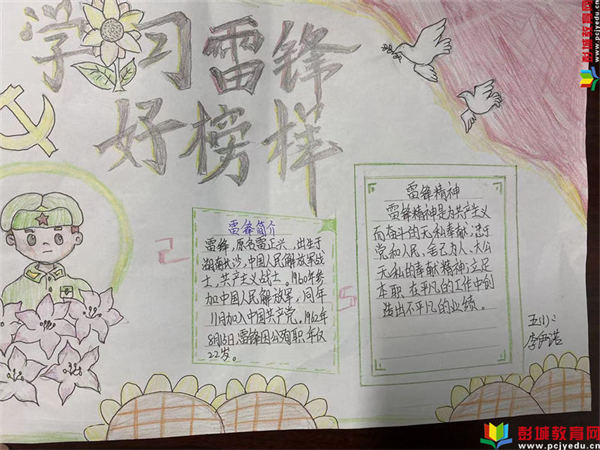 学习雷锋
好榜样
雷锋简介
雷锋，原名雷正兴，出生于
湖南长沙，中国人民解放军战
士，共产主义战士。1960年参
加中国人民解放军，同年
11月加入中国共产党。1962年
8月15日，雷锋因公殉职，年仅
22岁。
雷锋精神
雷锋精神是为共产主义
而奋斗的无私奉献；忠于
党和人民、舍己为人、大公
无私的奉献精神；立足
本职、在平凡的工作中创
造出不平凡的业绩。
2
5
彭城教育网
www.pcjyedu.cn
彭城教育网
www.pcjyedu.cn